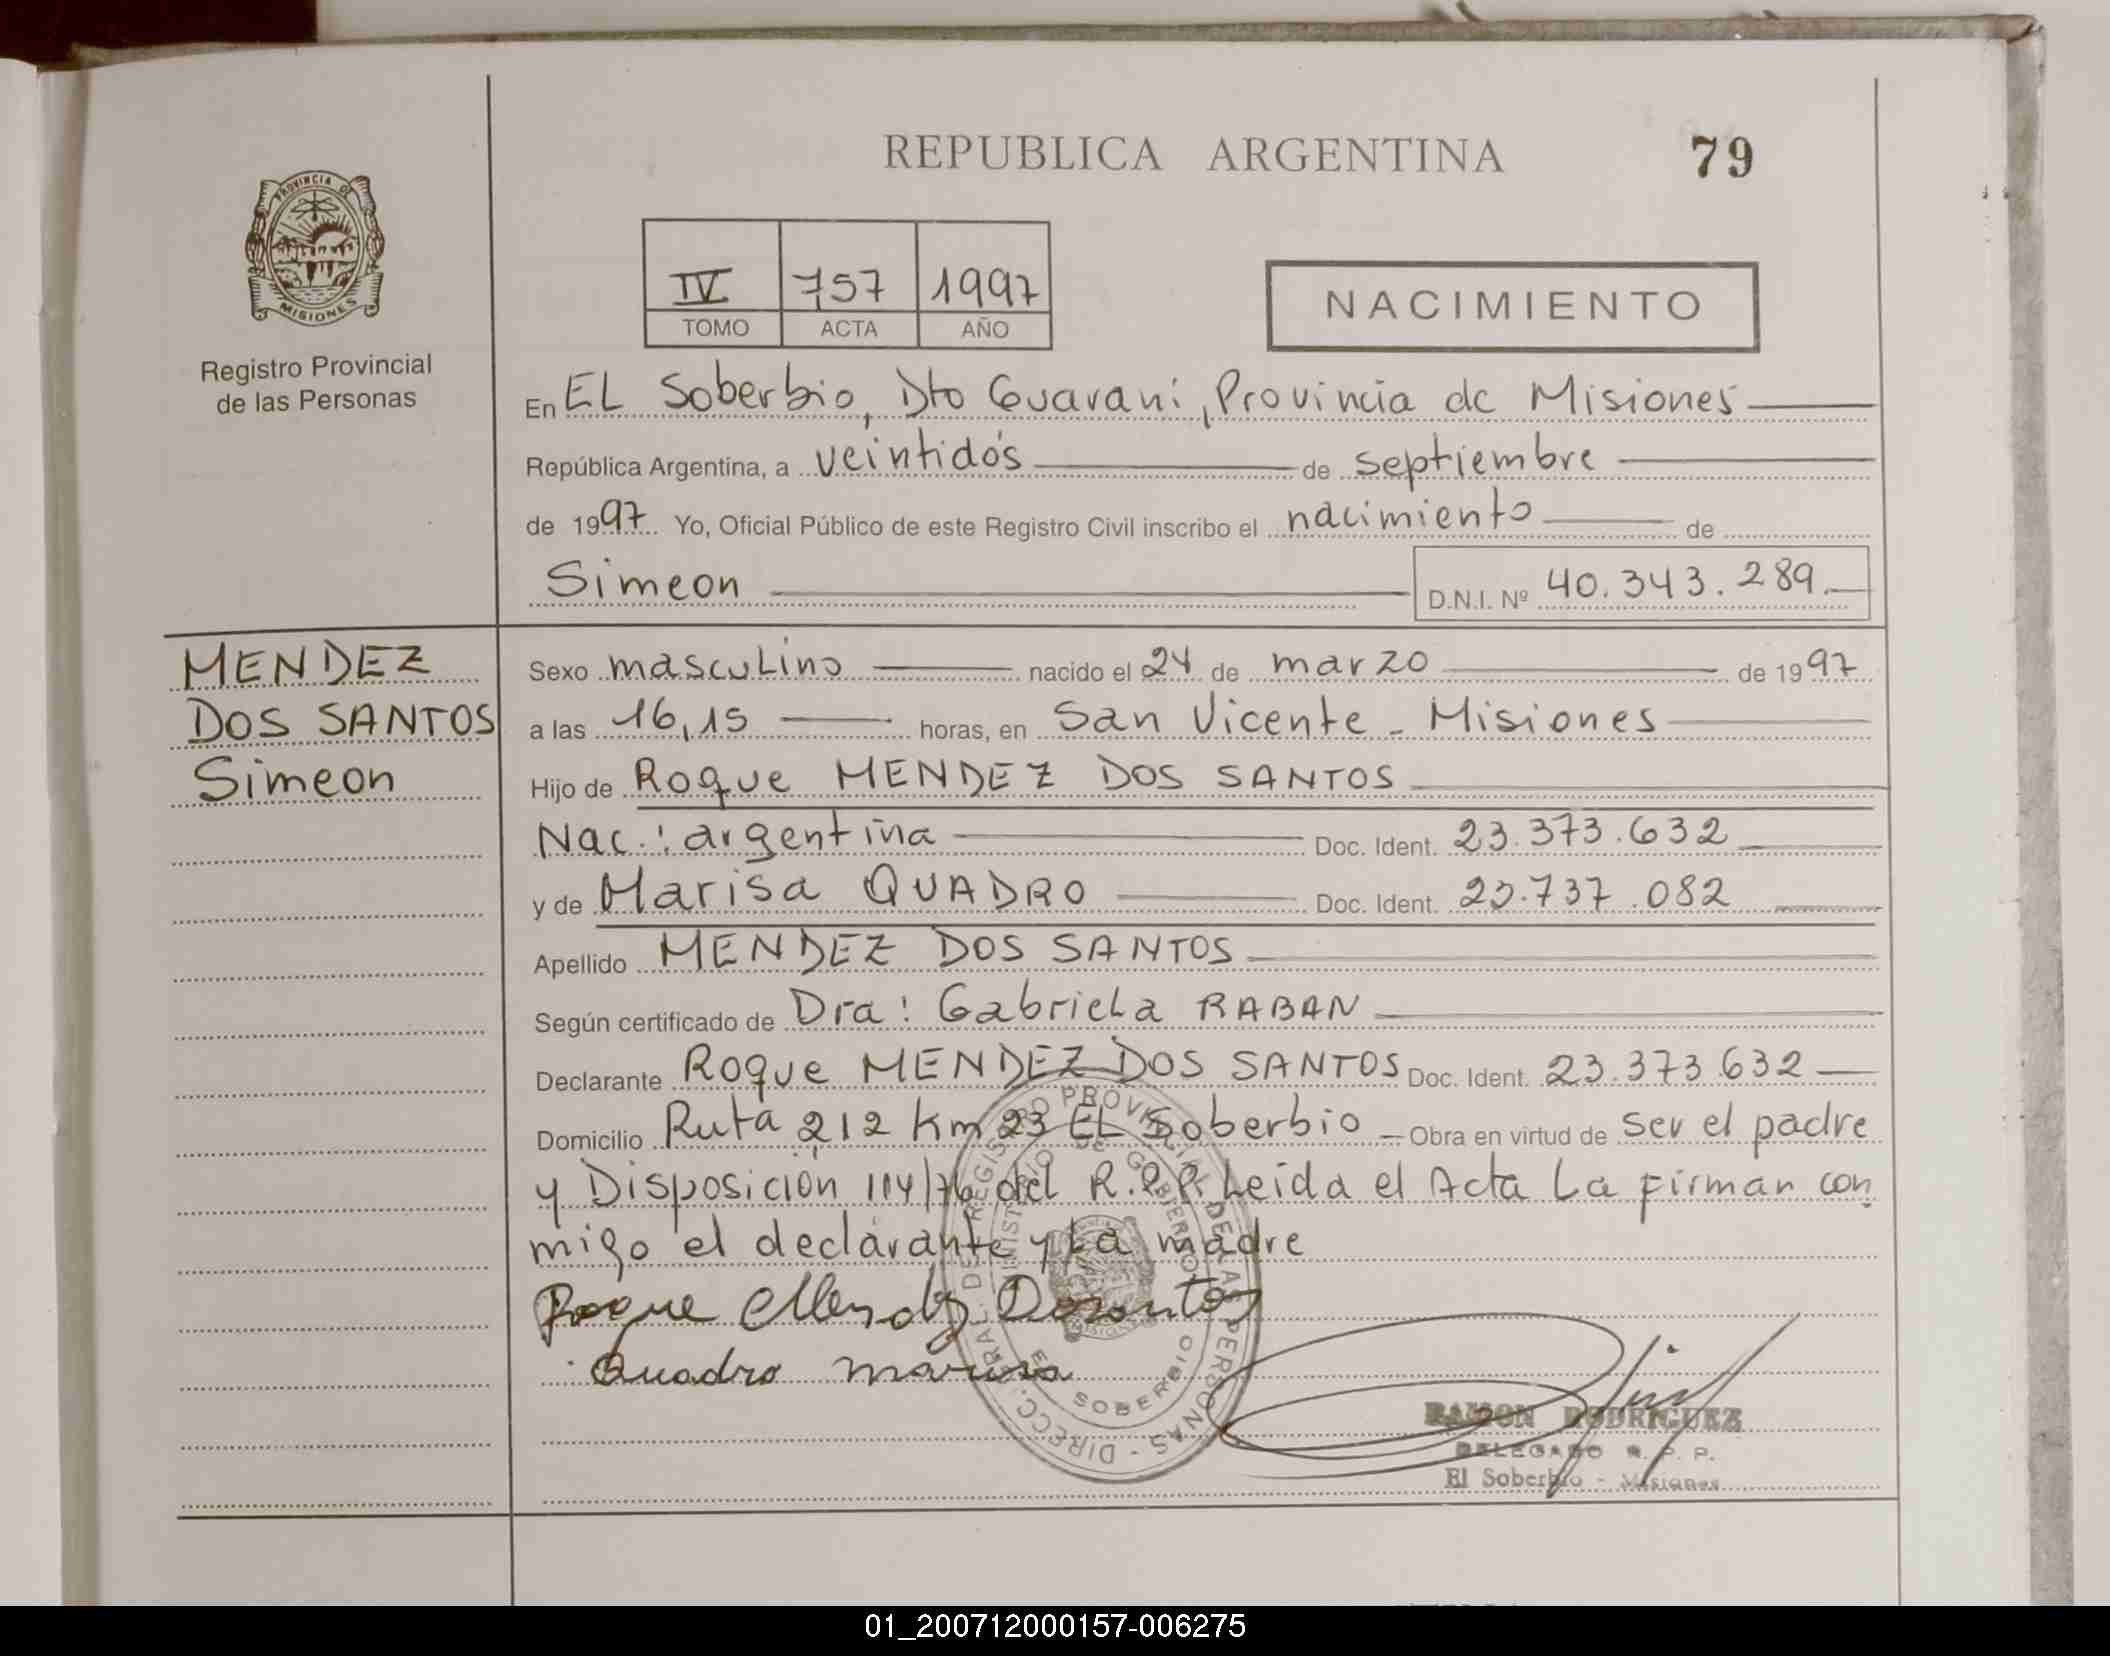 REPUBLICA ARGENTINA
79
PROVINCIA DE
MISIONES
Registro Provincial
de las Personas
IV 757 1997
TOMO ACTA AÑO
NACIMIENTO
En EL Soberbio, Dto Guaraní, Provincia de Misiones
República Argentina, a veintidós de septiembre
de 1997 Yo, Oficial Público de este Registro Civil inscribo el nacimiento de
Simeon D.N.I. Nº 40.343.289.
MENDEZ
DOS SANTOS
Simeon
Sexo masculino nacido el 24 de marzo de 1997
a las 16,15 horas, en San Vicente - Misiones
Hijo de Roque MENDEZ DOS SANTOS
Nac.: argentina Doc. Ident. 23.373.632
y de Marisa QUADRO Doc. Ident. 23.737.082
Apellido MENDEZ DOS SANTOS
Según certificado de Dra: Gabriela RABAN
Declarante Roque MENDEZ DOS SANTOS Doc. Ident. 23.373.632
Domicilio Ruta 212 Km 23 EL Soberbio - Obra en virtud de ser el padre
y Disposición 114/76 del R.P.P. Leida el Acta La firman con
migo el declarante y La madre
Roque Mendez Dosantos
Quadro marisa
DIRECC. GRAL. DE REGISTRO PROVINCIAL DE LAS PERSONAS
MINISTERIO DE GOBIERNO
EL SOBERBIO
RAMON RODRIGUEZ
DELEGADO R. P. P.
El Soberbio - Misiones
01_200712000157-006275